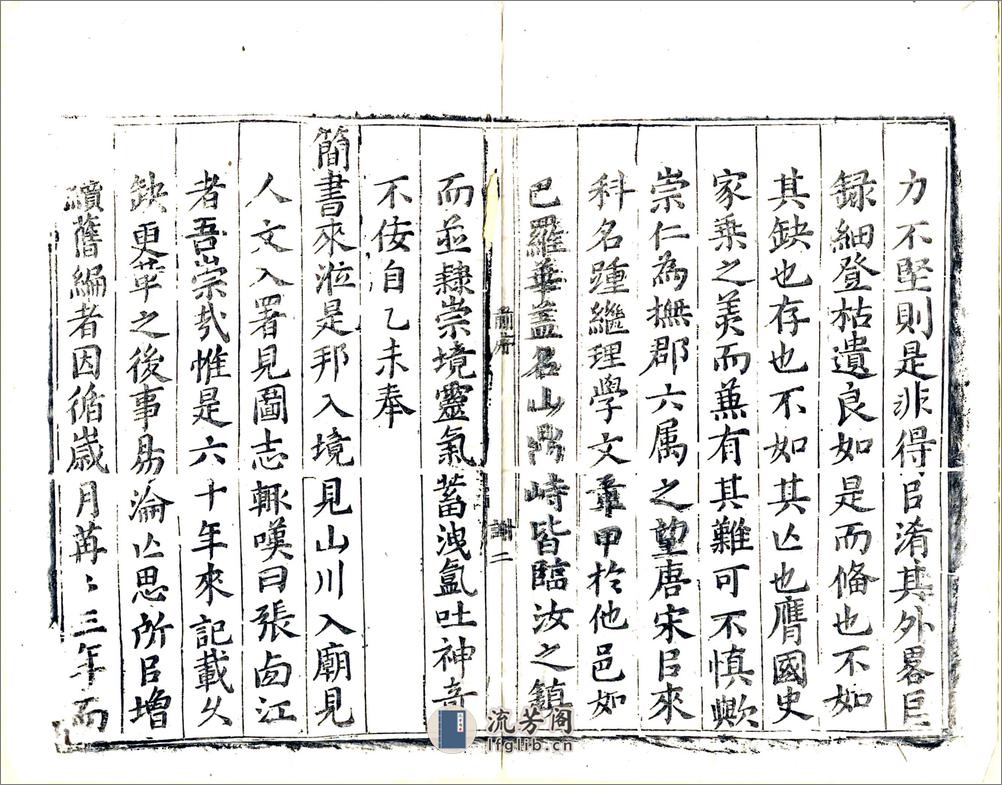 力不堅則是非得㠯淆其外畧巨
録細登枯遺良如是而偹也不如
其缺也存也不如其亾也膺國史
家乘之羙而蕪有其難可不慎歟
崇仁為撫郡六属之望唐宋㠯來
科名踵繼理學文章甲扵他邑如
巴羅華盖名山鼎峙皆臨汝之鎮
而並隸崇境靈氣蓄洩氳吐神奇
前序
二
不佞自乙未奉
簡書來涖是邦入境見山川入廟見
人文入署見圖志輙嘆曰張鹵江
者吾崇㢤惟是六十年來記載乆
缺更革之後事易淪亾思所㠯增
續舊編者因循歲月苒〻三年而
流芳阁
lfglib.cn